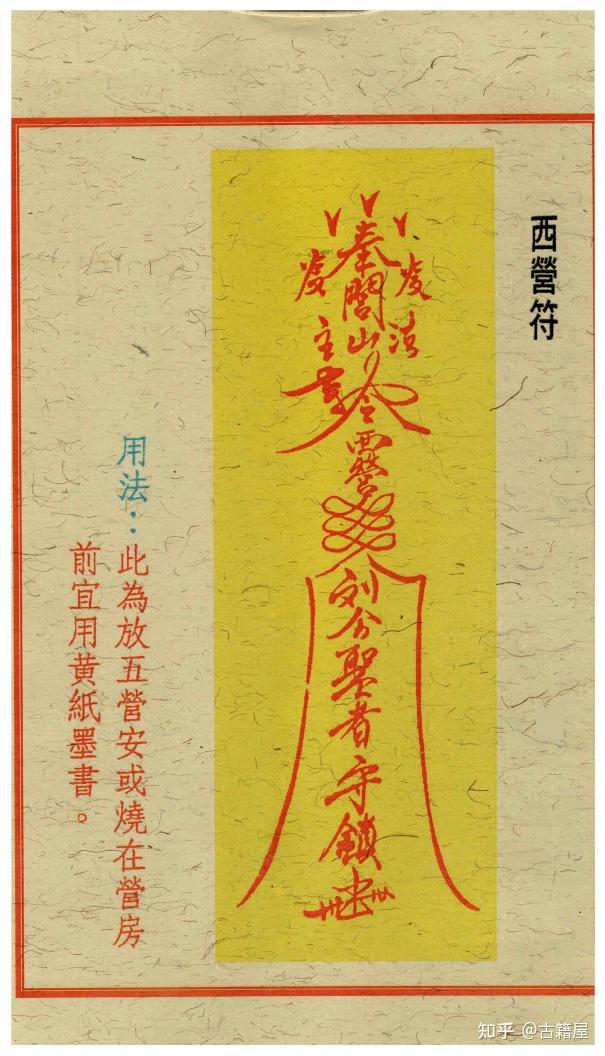 西營符
奉閭山
法
主
令
劉公聖者守鎮
用法：
此為放五營安或燒在營房
前宜用黃紙墨書。
知乎 @古籍屋